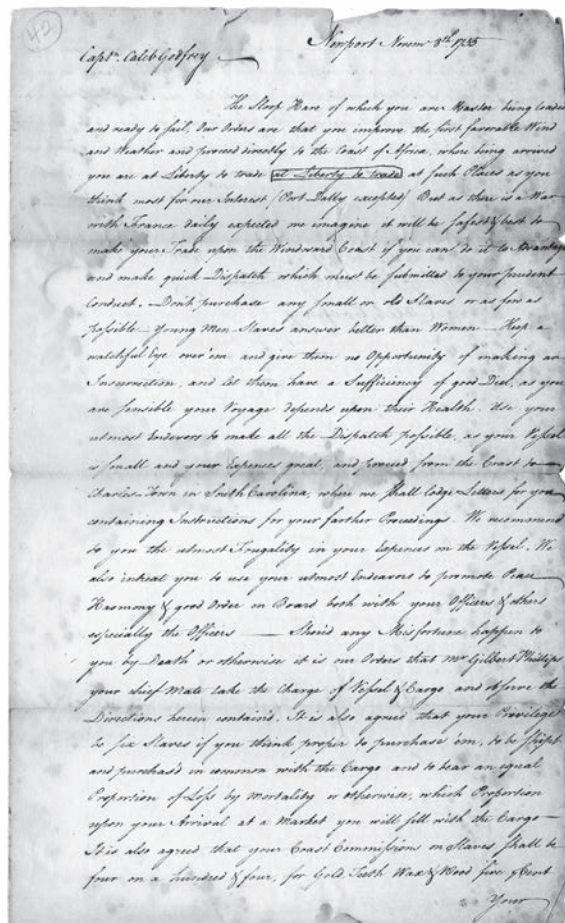 42
Newport Novemr 8th 1755
Captn. Caleb Godfrey
The Sloop Hare of which you are Master being loaded
and ready to sail, Our Orders are that you improve the first favorable Wind
and Weather and proceed directly to the Coast of Africa, where being arrived
you are at Liberty to trade at Liberty to trade at such Places as you
think most for our Interest (Port Dally excepted) But as there is a War
with France daily expected we imagine it will be safest & best to
make your Trade upon the Windward Coast if you can do it to Advantage
and make quick Dispatch which must be submitted to your prudent
Conduct. Don't purchase any small or old Slaves or as few as
possible — Young Men Slaves answer better than Women — Keep a
watchful Eye over 'em and give them no Opportunity of making an
Insurrection, and let them have a Sufficiency of good Diet, as you
are sensible your Voyage depends upon their Health. Use your
utmost Endevors to make all the Dispatch possible, as your Vessel
is small and your Expences great, and proceed from the Coast to
Charles-Town in South Carolina, where we shall lodge Letters for you
containing Instructions for your farther Proceedings. We recommend
to you the utmost Frugality in your Expences on the Vessel. We
also intreat you to use your utmost Endeavors to promote Peace
Harmony & good Order on Board both with your Officers & others
especially the Officers — Should any Misfortune happen to
you by Death or otherwise it is our Orders that Mr Gilbert Phillips
your Chief Mate take the Charge of Vessel & Cargo and observe the
Directions herein contain'd. It is also agreed that your Privilege
be six Slaves if you think proper to purchase 'em, to be shipt
and purchas'd in common with the Cargo and to bear an equal
Proportion of Loss by Mortality or otherwise, which Proportion
upon your Arrival at a Market you will sell with the Cargo —
It is also agreed that your Coast Commissions on Slaves shall be
four on a hundred & four, for Gold, Teeth Wax & Wood five Cent
Your